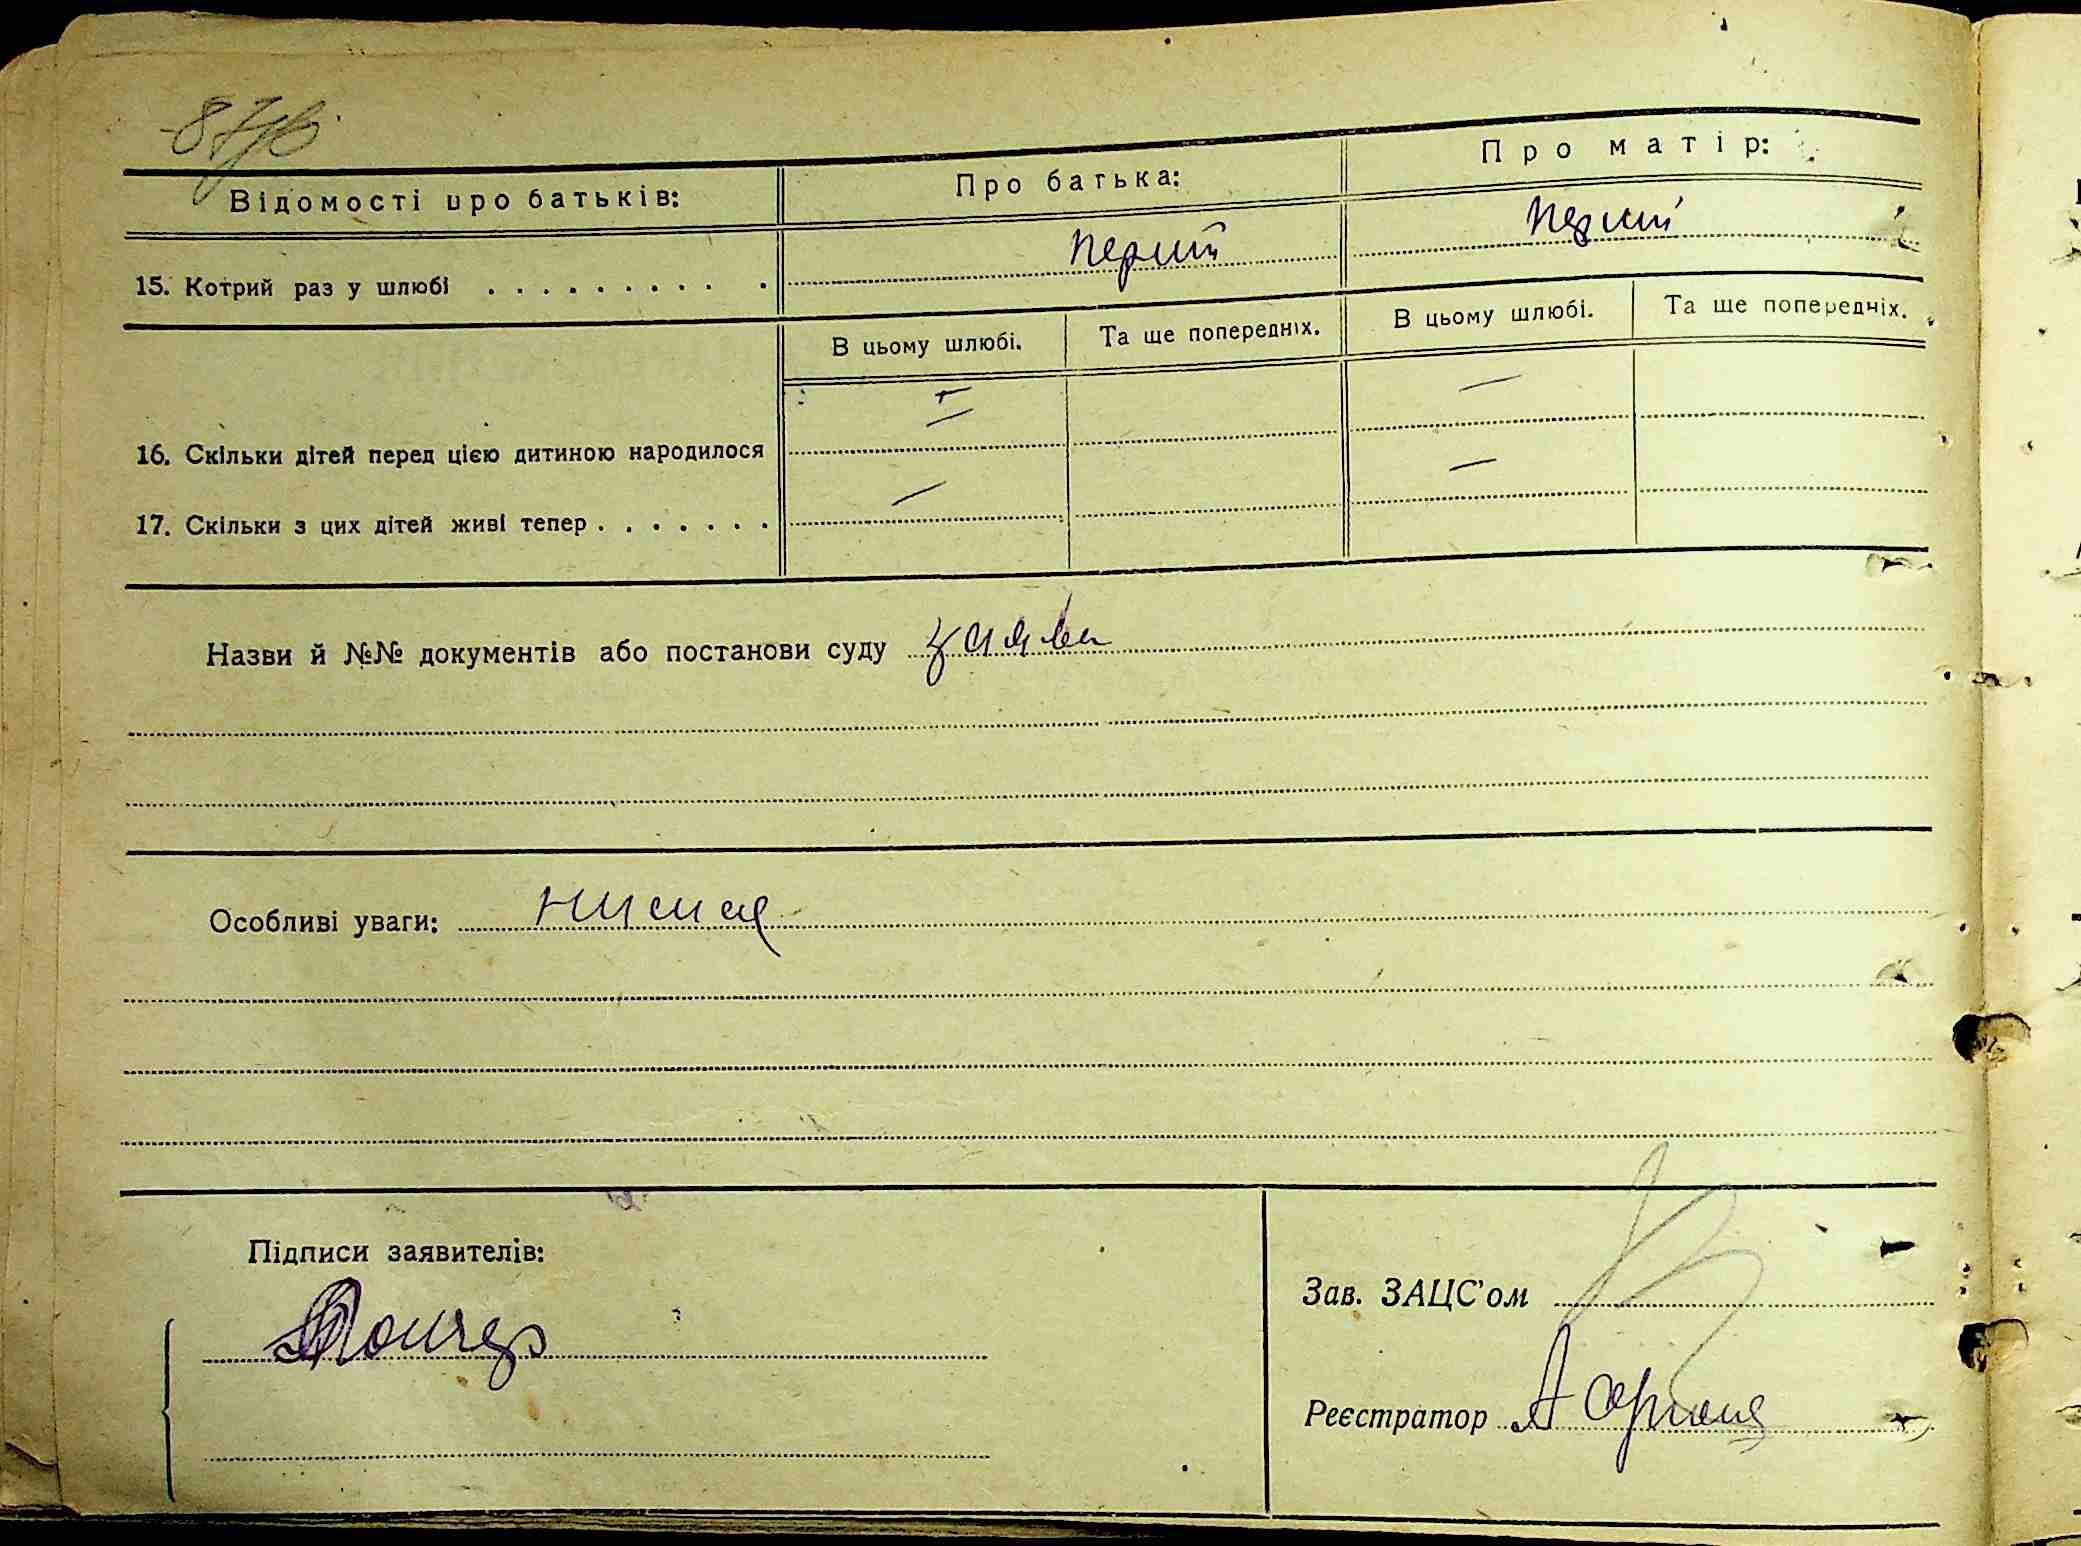 Відомості про батьків:
Про батька:
Про матір:
15. Котрий раз у шлюбі . . . . . . . . . .
перший
перший
В цьому шлюбі.
Та ще попередніх.
В цьому шлюбі.
Та ще попередніх.
16. Скільки дітей перед цією дитиною народилося
—
—
17. Скільки з цих дітей живі тепер . . . . . . .
—
—
Назви й №№ документів або постанови суду заява
Особливі уваги:
Підписи заявителів:
Зав. ЗАЦС'ом
Реєстратор